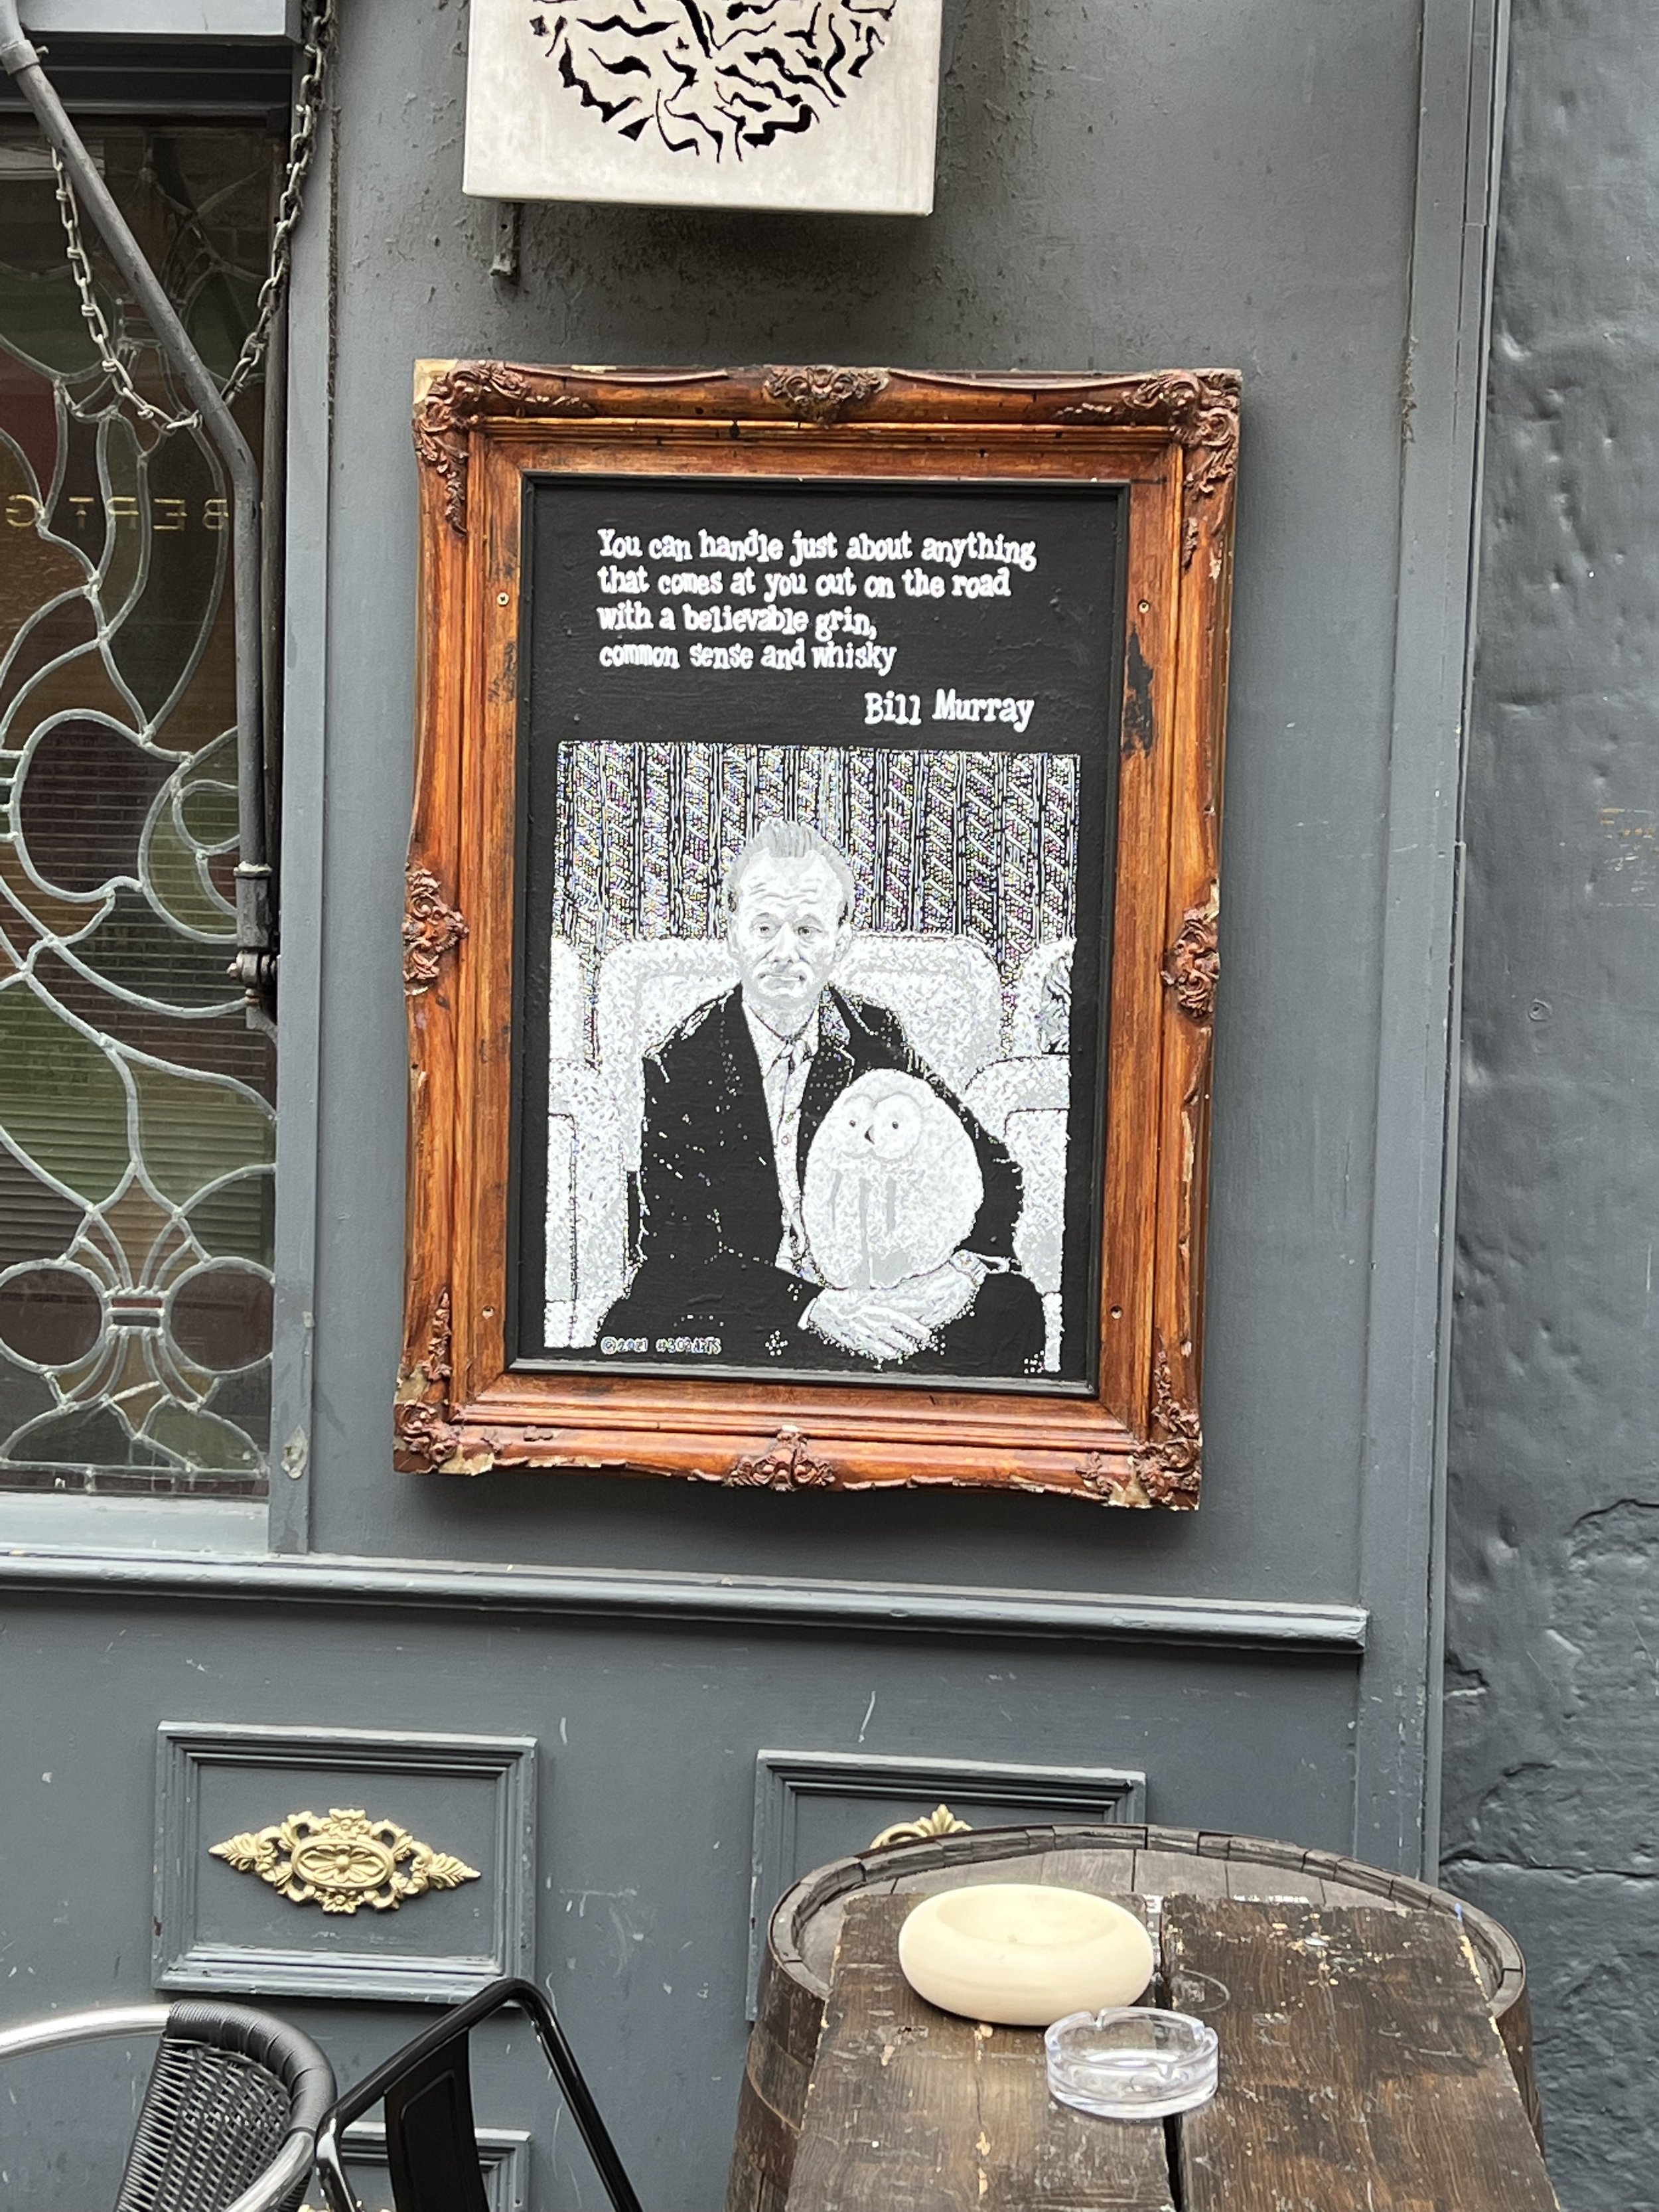 You can handle just about anything
that comes at you out on the road
with a believable grin,
common sense and whisky
Bill Murray